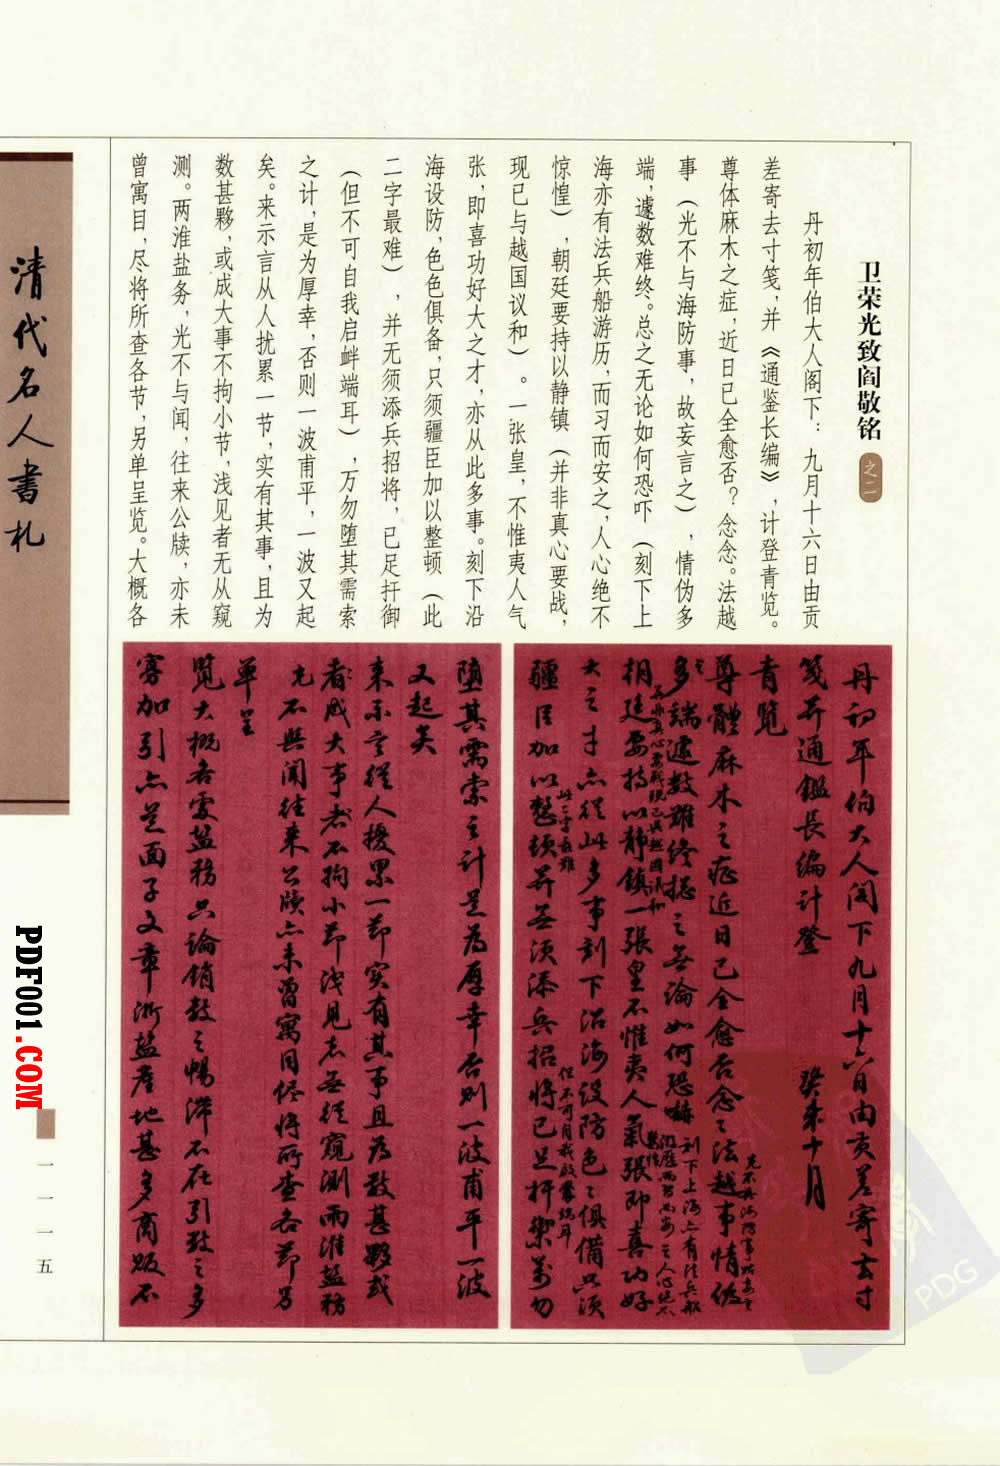 卫荣光致阎敬铭 之二
丹初年伯大人阁下：九月十六日由贡
差寄去寸笺，并《通鉴长编》，计登青览。
尊体麻木之症，近日已全愈否？念念。法越
事（光不与海防事，故妄言之），情伪多
端，遽数难终。总之无论如何恐吓（刻下上
海亦有法兵船游历，而习而安之，人心绝不
惊惶），朝廷要持以静镇（并非真心要战，
现已与越国议和）。一张皇，不惟夷人气
张，即喜功好大之才，亦从此多事。刻下沿
海设防，色色俱备，只须疆臣加以整顿（此
二字最难），并无须添兵招将，已足扞御
（但不可自我启衅端耳），万勿堕其需索
之计，是为厚幸，否则一波甫平，一波又起
矣。来示言从人扰累一节，实有其事，且为
数甚夥，或成大事不拘小节，浅见者无从窥
测。两淮盐务，光不与闻，往来公牍，亦未
曾寓目，尽将所查各节，另单呈览。大概各
丹初年伯大人阁下九月十六日由贡差寄去寸
笺并通鑑長编计登 癸未十月
青览
尊體麻木之症近日已全愈否念〻法越事情伪
光不与海防事故妄言之
多端遽数難终捴之無論如何恐嚇
刻下上海亦有法兵船
游歷而習而安之人心绝不
驚惶
朝廷要持以静鎮一張皇不惟夷人氣張即喜功好
并非真心要戰現已與越國議和
大之才亦從此多事刻下沿海设防色〻俱備只须
疆臣加以整頓并無须添兵招将已足扞禦萬勿
此二字最難
但不可自我啟釁端耳
堕其需索之计是為厚幸否则一波甫平一波
又起矣
来示言從人擾累一节实有其事且為数甚夥或
者成大事者不拘小节浅見者無從窺測两淮盐務
光不與闻往来公牘亦未曾寓目尽将所查各节另
单呈
览大概各處盐務只論銷数之暢滞不在引数之多
寡加引亦是面子文章浙盐産地甚多商贩不
清代名人書札
PDF001.COM
一一一五
PDG